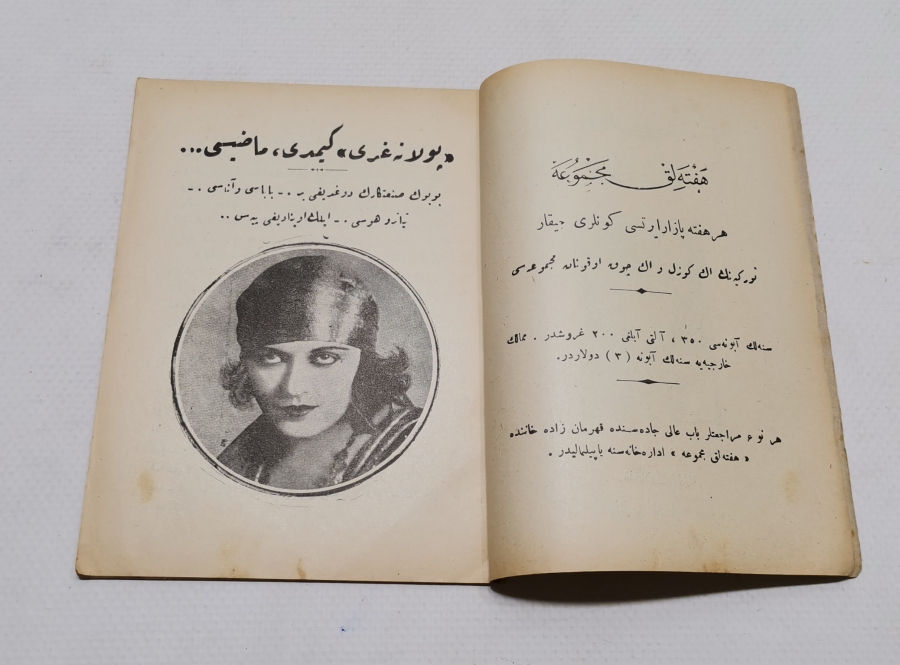 هفته‌لق مجموعه
هر هفته پازارايرتسی كونلری چيقار
توركيه‌نك اك كوزل و اك چوق اوقونان مجموعه‌سی
سنه‌لك آبونه‌سی ٣٥٠ ، آلتی آيلغی ٢٠٠ غروشدر . ممالك
خارجيه‌يه سنه‌لك آبونه ( ٣ ) دولاردر.
هر نوع مراجعتلر باب عالی جاده‌سنده قهرمان زاده خاننده
« هفته‌لق مجموعه » اداره‌خانه‌سنه ياپيلماليدر .
«پولا نه‌غری» كيمدی، ماضيسی...
بويوك صنعتكارك دوغديغی ير . – باباسی و آناسی . –
تياترو هوسی . – ايلك اوينادیغی پيه‌س ..